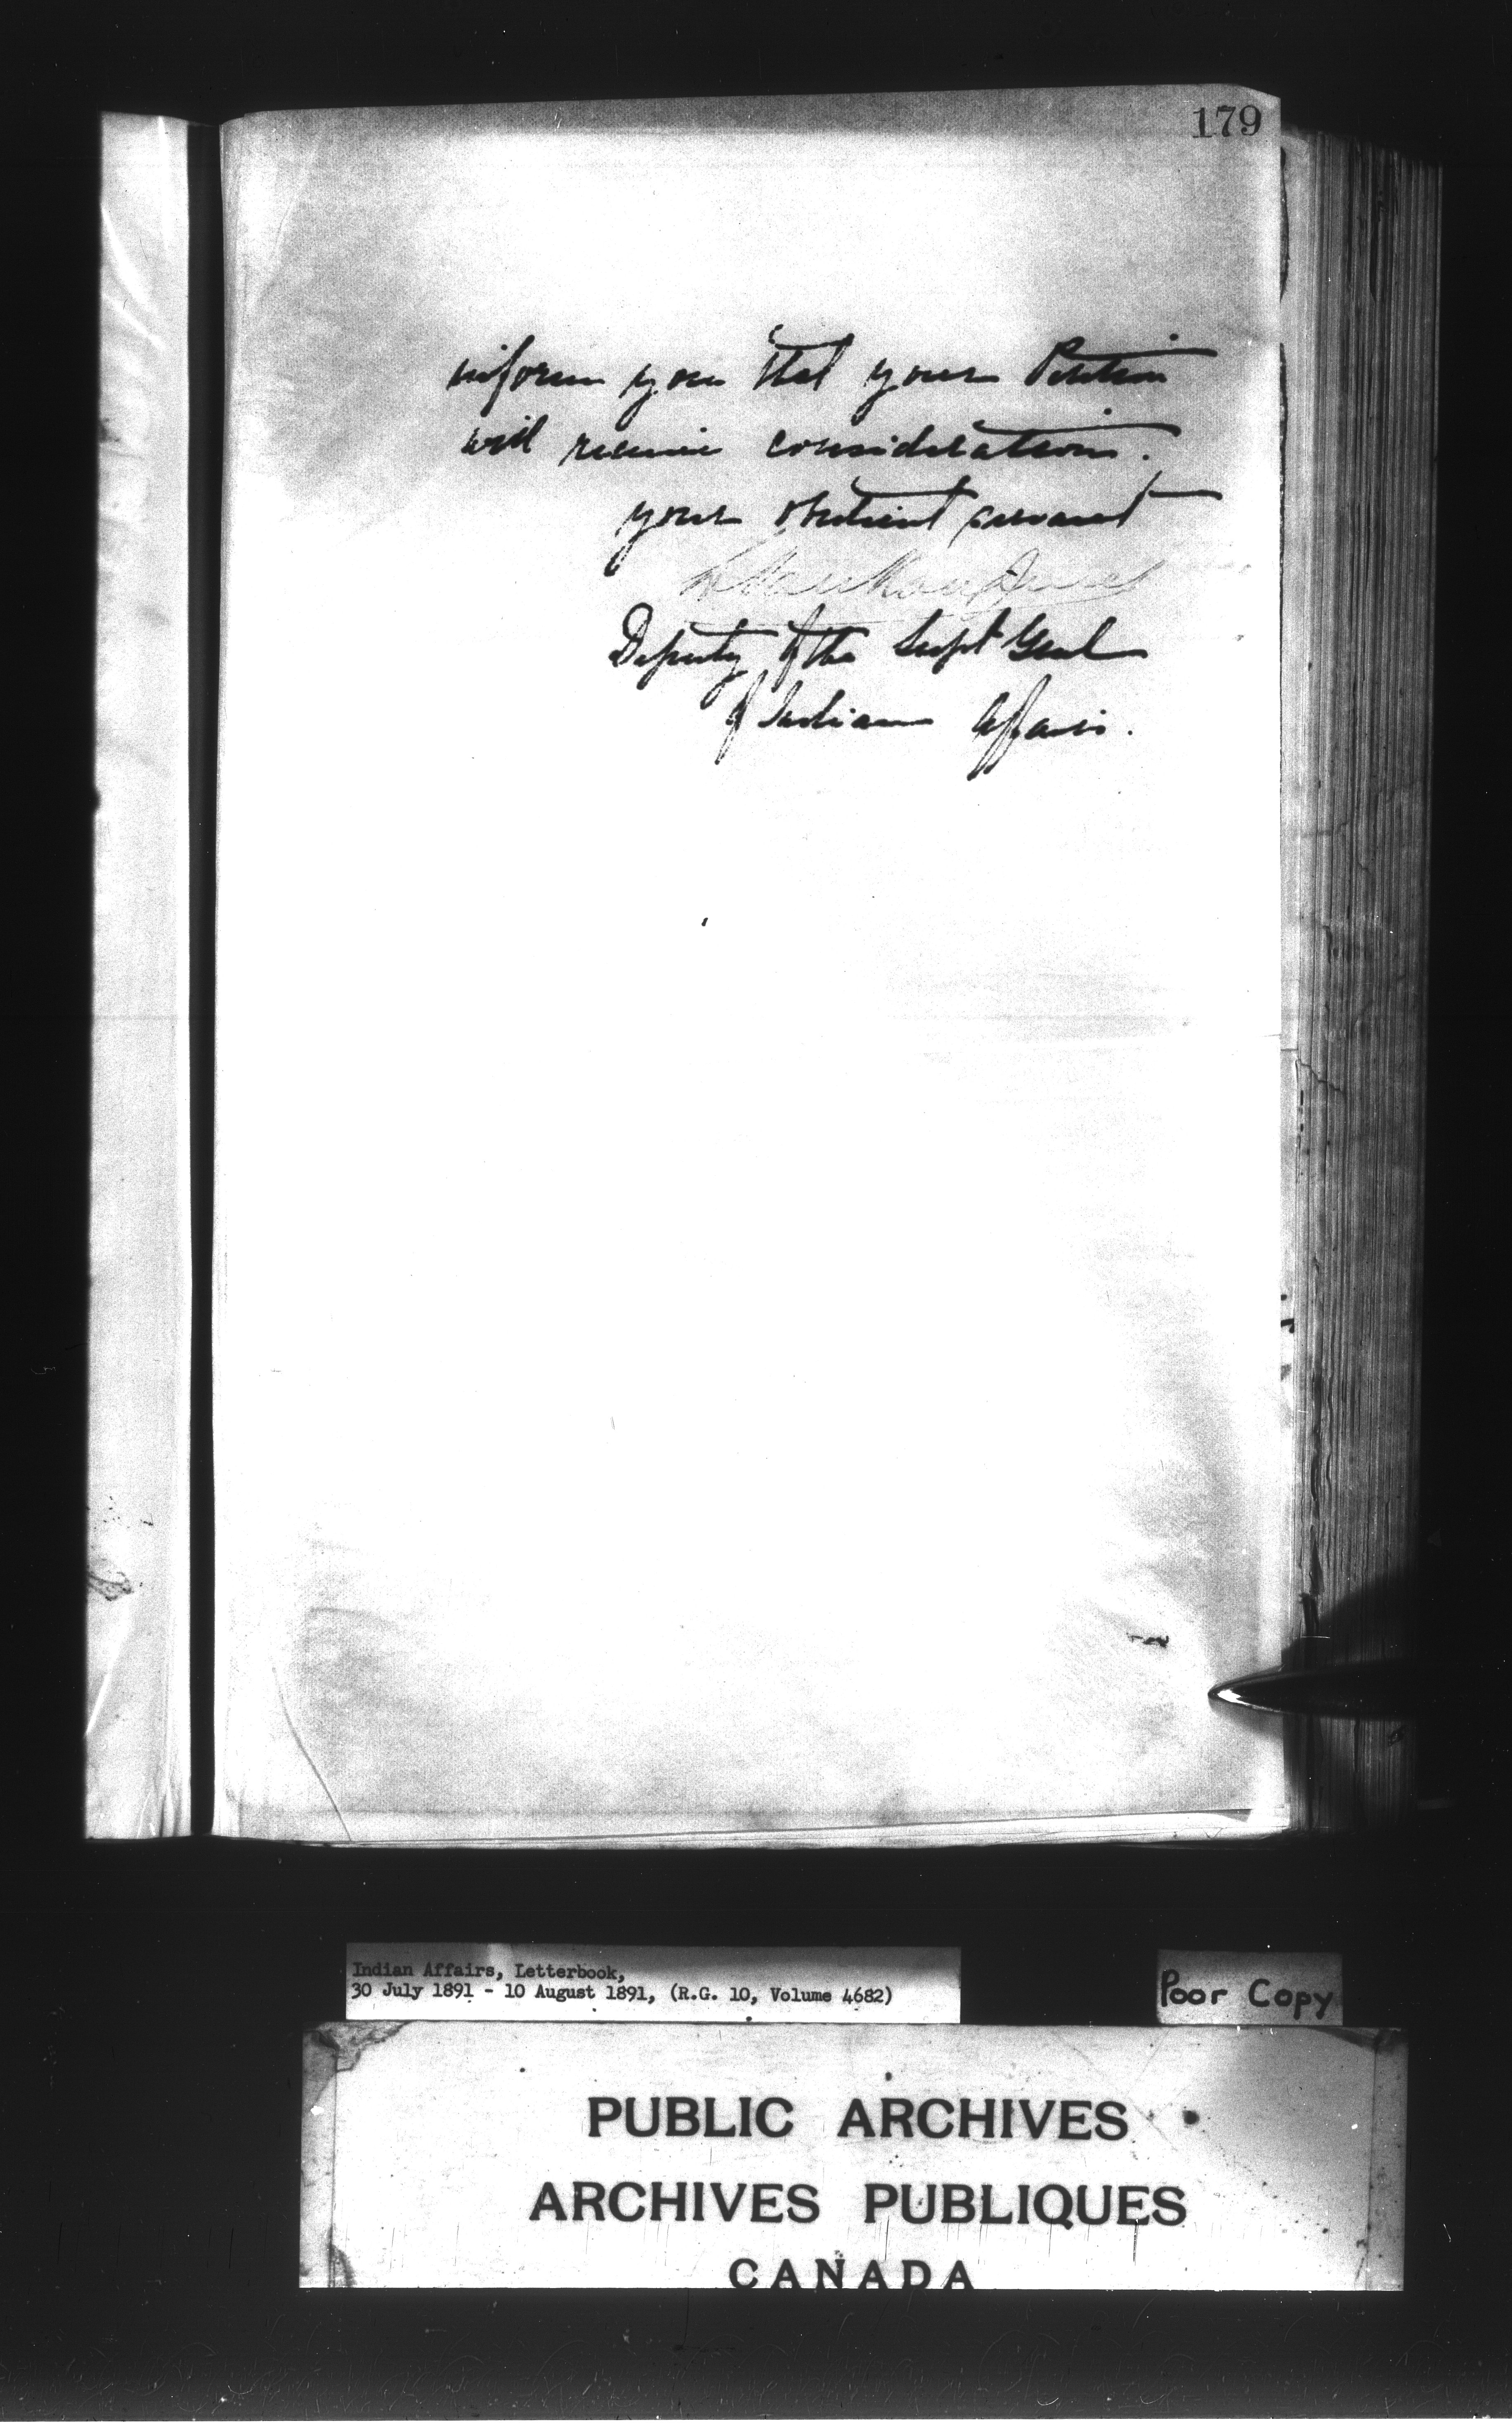 179
inform you that your Petition
will receive consideration.
your obedient servant
L VanKoughnet
Deputy of the Supt Genl
of Indian Affairs.
Indian Affairs, Letterbook,
30 July 1891 - 10 August 1891, (R.G. 10, Volume 4682)
Poor Copy
PUBLIC ARCHIVES
ARCHIVES PUBLIQUES
CANADA